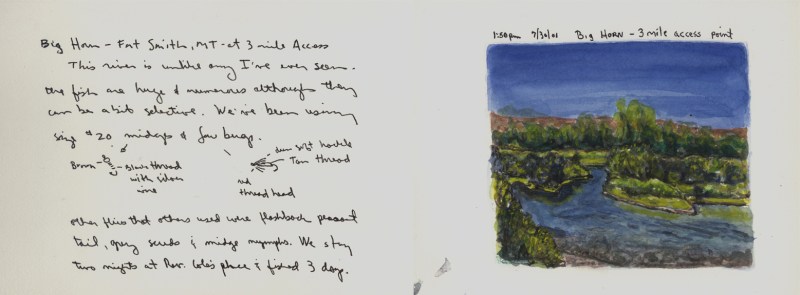 Big Horn - Fort Smith, MT - at 3 mile Access
This river is unlike any I've ever seen.
the fish are huge & numerous although they
can be a bit selective. We've been using
size #20 midges & few bugs.
Brown - black thread
with silver
wire
dun soft hackle
Tan thread
red
thread head
other flies that others used were flashback pheasant
tail, grey scuds & midge nymphs. We stay
two nights at Rev. Cole's place & fished 3 days.
1:50pm 7/30/01 Big Horn - 3 mile access point